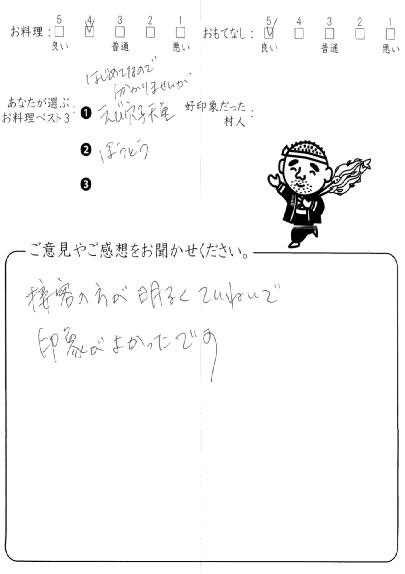 お料理： 5 4 3 2 1 おもてなし： 5 4 3 2 1
良い 普通 悪い 良い 普通 悪い
はじめてなので
分かりませんが
あなたが選ぶ
お料理ベスト3：
❶ えび穴子天重
❷ ほうとう
❸
好印象だった
村人：
ご意見やご感想をお聞かせください。
接客の方が明るくていねいで
印象がよかったです